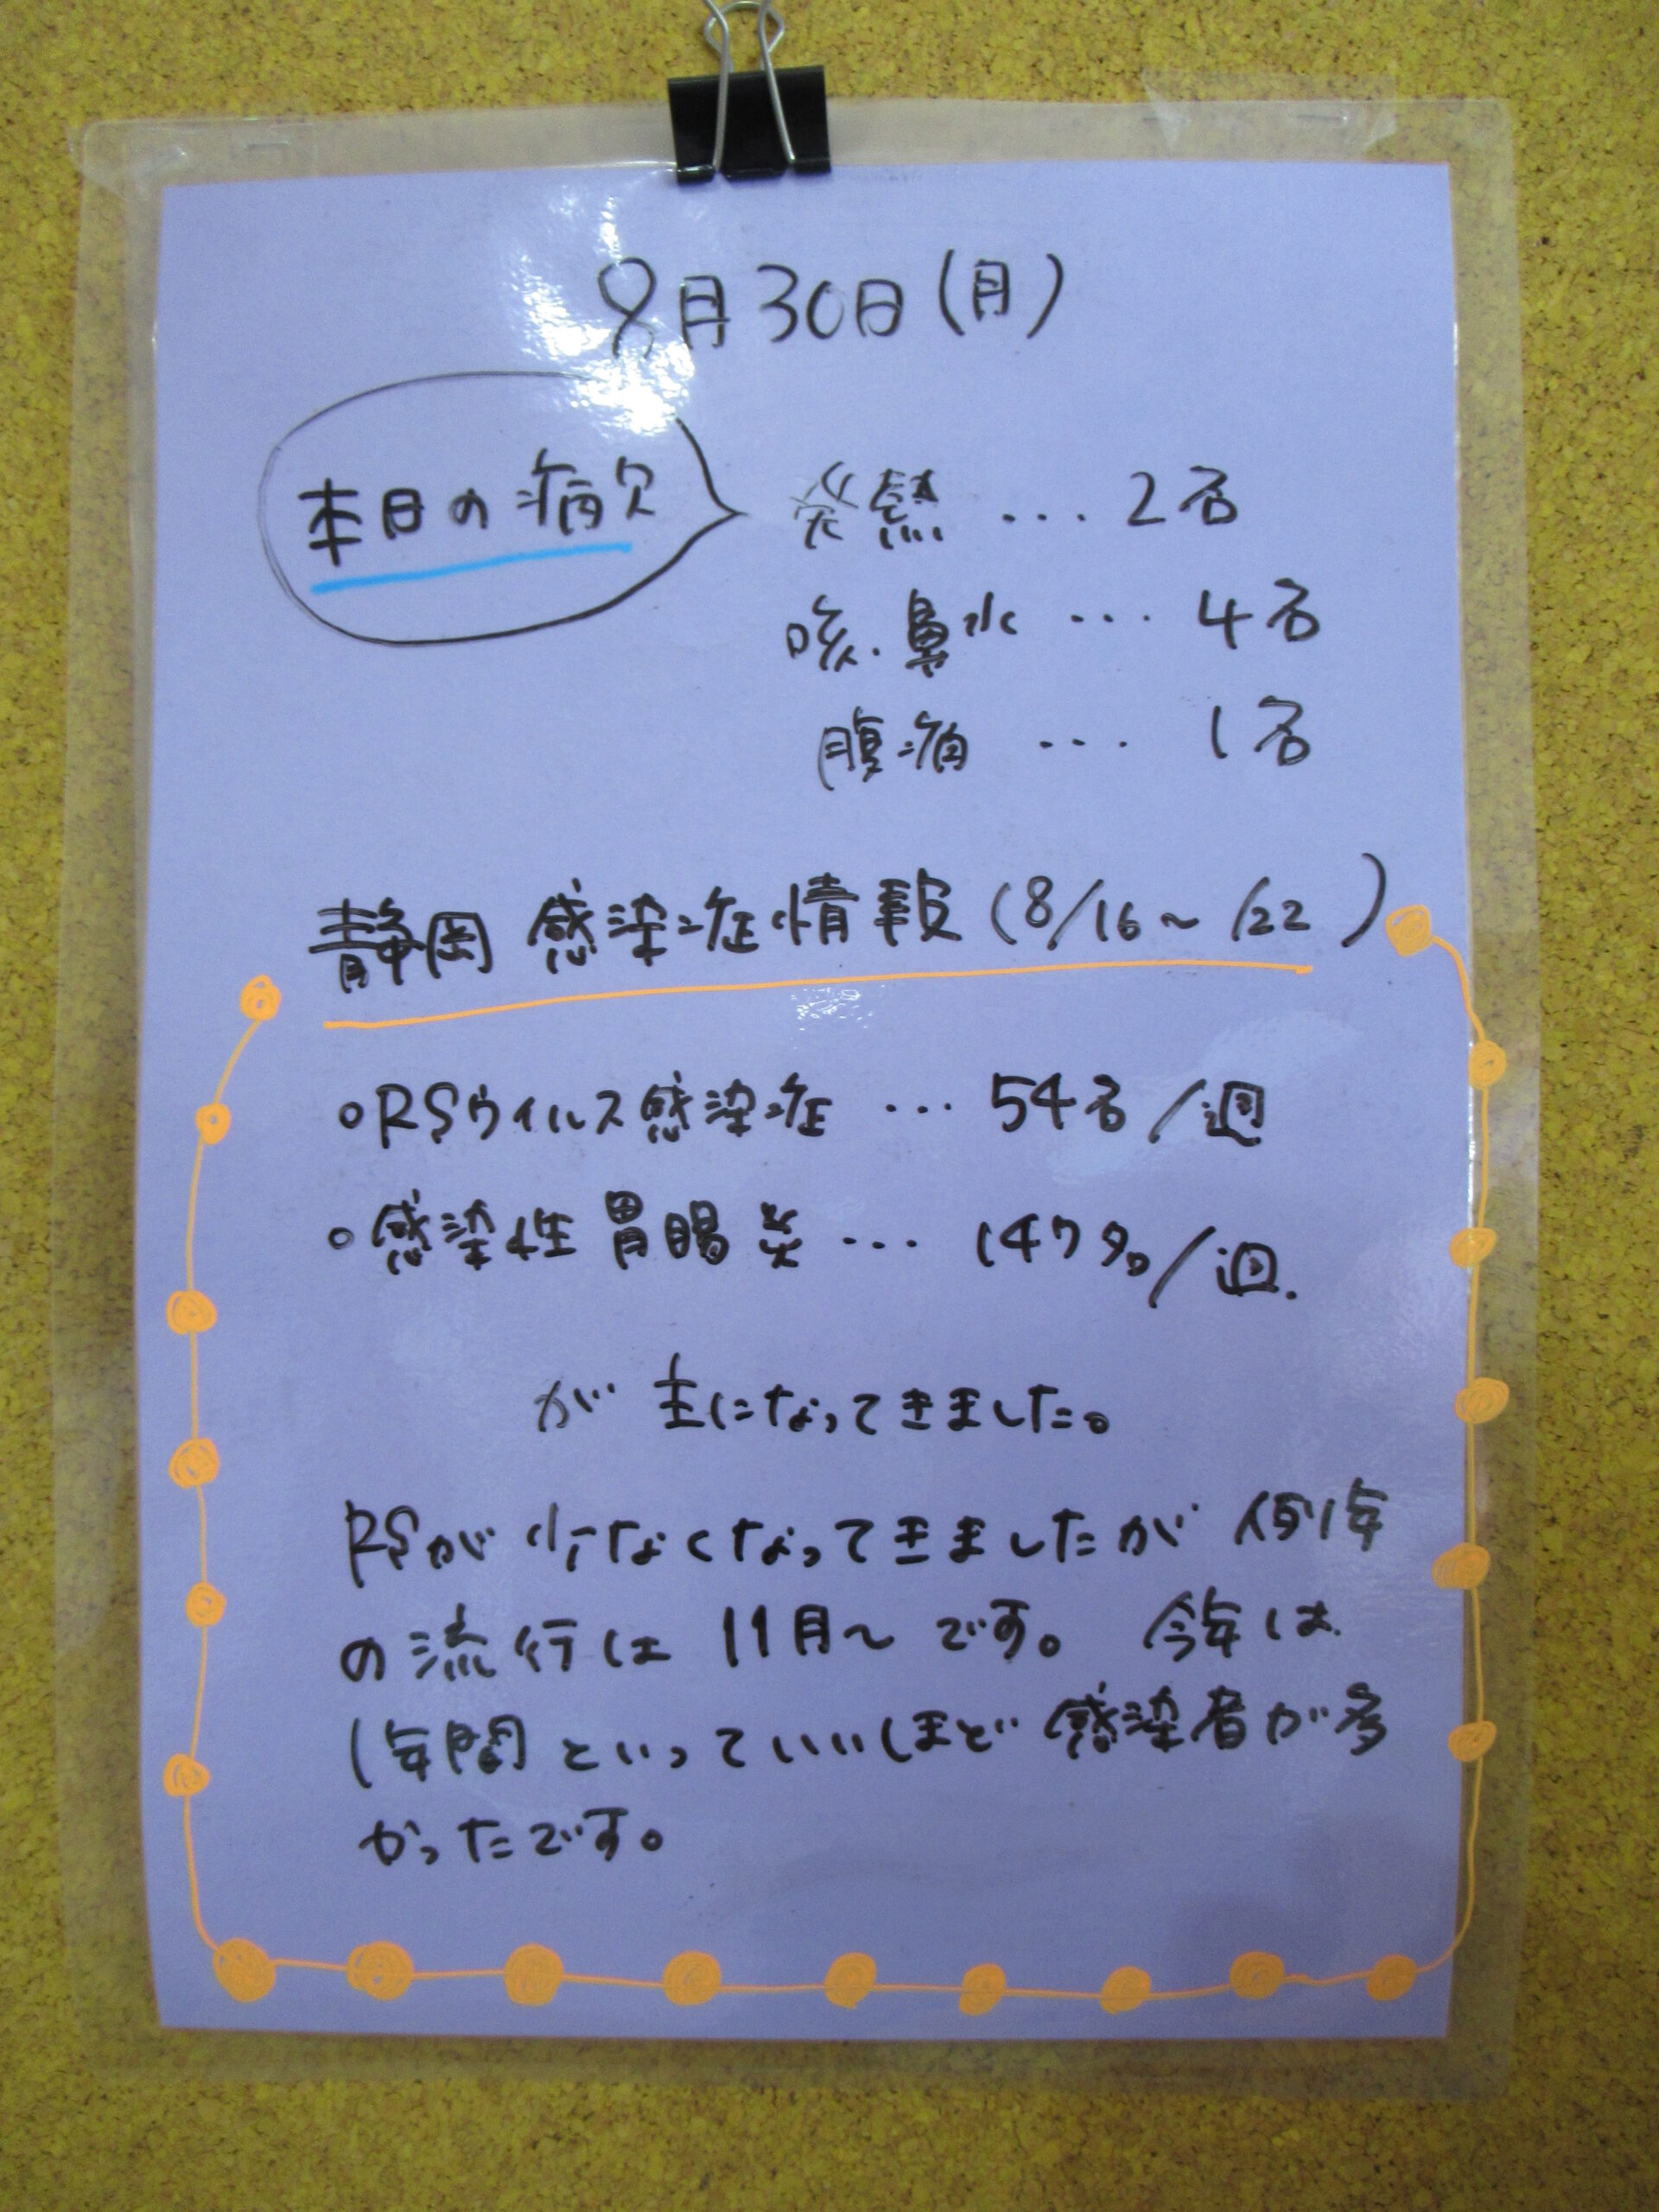 9月30日(月)
本日の病欠
発熱 ... 2名
咳.鼻水 ... 4名
腹痛 ... 1名
静岡 感染症情報 (8/16~/22)
○RSウイルス感染症 ... 54名/週
○感染性胃腸炎... 147名/週.
が 主になってきました。
RSが少なくなってきましたが 例年
の流行は 11月~です。 今年は
1年間といっていいほど感染者が多
かったです。